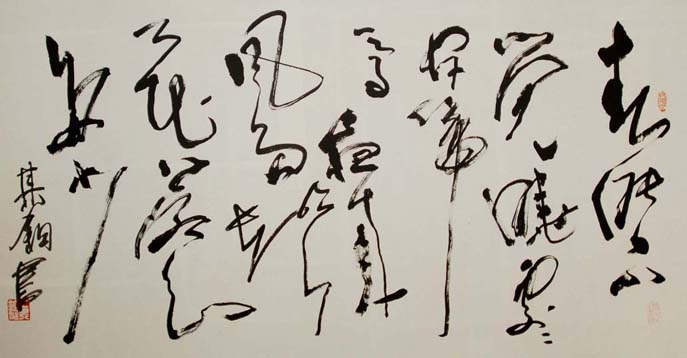 春眠不
觉晓处々
闻啼
鸟夜来
风雨声
花落知
多少